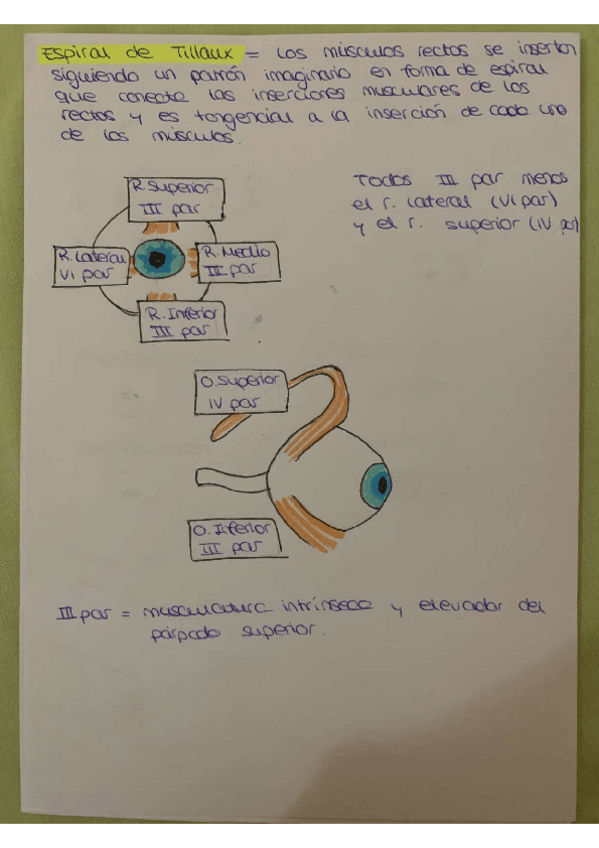 Espiral de Tillaux = Los músculos rectos se insertan
siguiendo un patrón imaginario en forma de espiral
que conecta las inserciones musculares de los
rectos y es tangencial a la inserción de cada uno
de los músculos.
Todos III par menos
el r. lateral (VI par)
y el r. superior (IV par)
R. Superior
III par
R. Lateral
VI par
R. Medio
III par
R. Inferior
III par
O. Superior
IV par
O. Inferior
III par
III par = musculatura intrínseca y elevador del
párpado superior.